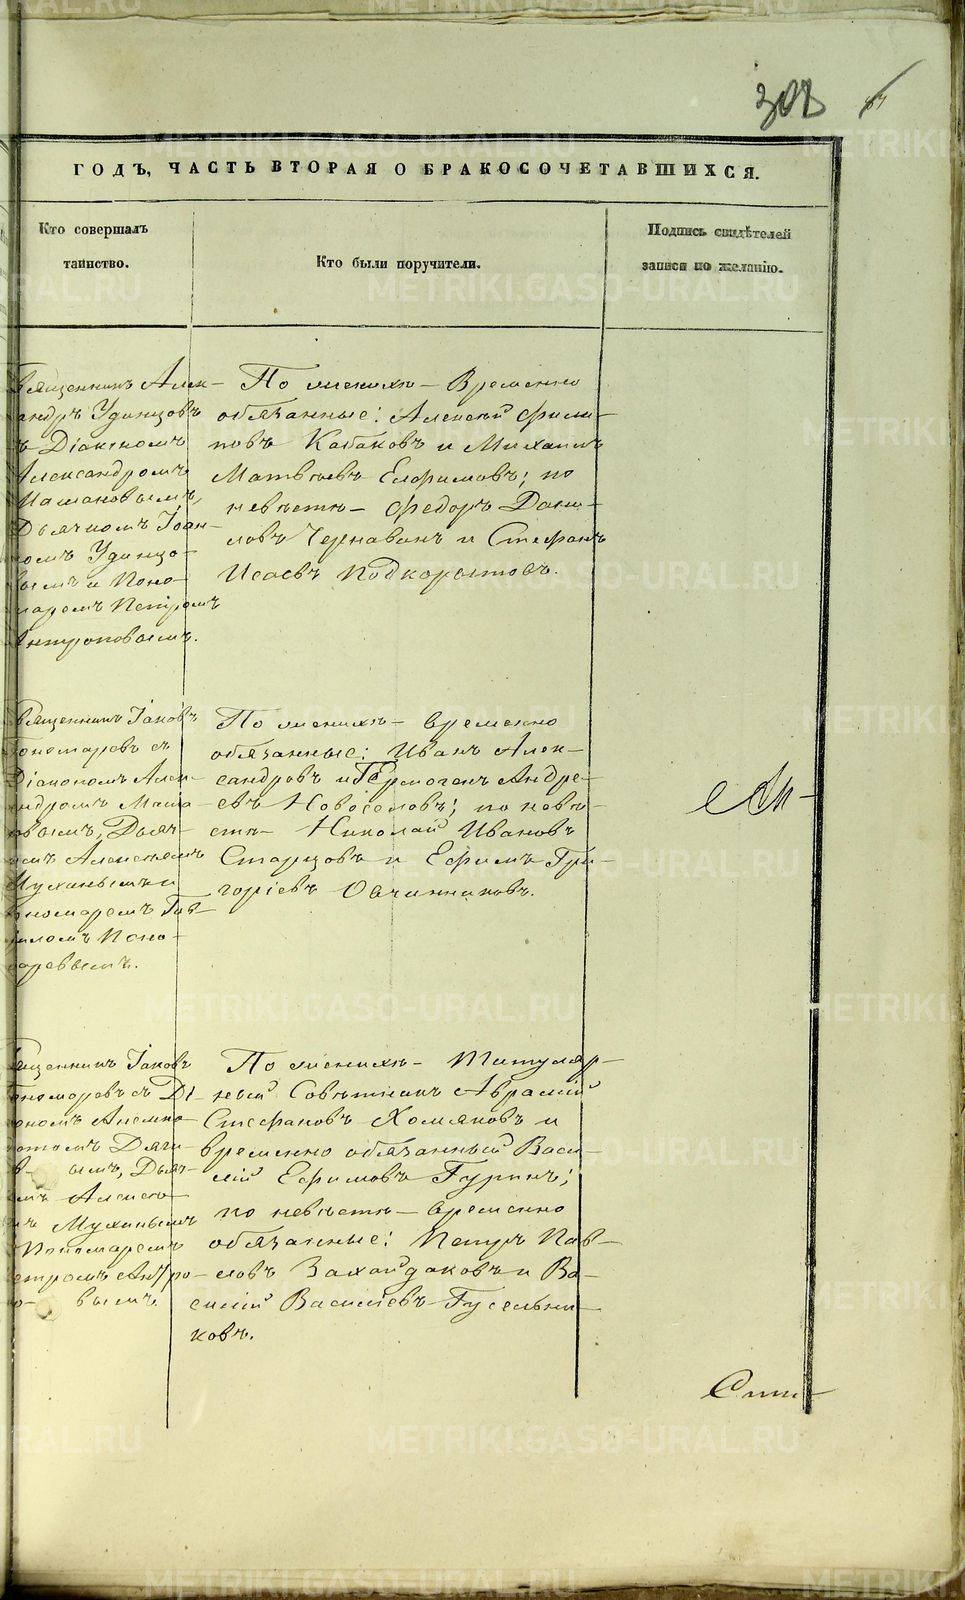 308
ГОДЪ, ЧАСТЬ ВТОРАЯ О БРАКОСОЧЕТАВШИХСЯ.
Кто совершалъ
таинство.
Кто были поручители.
Подпись свидѣтелей
записи по желанію.
вященникъ Алек-
андръ Удинцовъ
ъ Діакономъ
Александромъ
Дьячкомъ Іоан-
номъ Удинцо-
вымъ и Поно-
маремъ Петромъ
Антроповымъ.
По женихѣ – Временно
обязанные: Алексѣй Фили-
повъ Кабаковъ и Михаилъ
Матвѣевъ Ефимовъ; по
невѣстѣ – Федоръ Дани-
ловъ Чернаванъ и Стефанъ
Исаевъ Подкорытовъ.
вященникъ Іаковъ
Пономаревъ съ
Діакономъ Алек-
андромъ Маша-
новымъ, Дьяч-
омъ Алексѣемъ
Мухинымъ и
ономаремъ Гав-
риломъ Поно-
маревымъ.
По женихѣ – временно
обязанные: Иванъ Алек-
сандровъ и Гермогенъ Андре-
евъ Новоселовъ; по невѣ-
стѣ – Николай Ивановъ
Старцовъ и Ефимъ Гри-
горіевъ Овчинниковъ.
ященникъ Іаковъ
ономаревъ съ Ді-
ономъ
вымъ, Дьяч-
омъ Алексѣе-
мъ Мухинымъ
Пономаремъ
етромъ Антро-
по- вымъ.
По женихѣ – Титуляр-
ный Совѣтникъ Аврамій
Стефановъ Хомяковъ и
временно обязанный Васи-
лій Ефимовъ Гуринъ;
по невѣстѣ – временно
обязанные: Петръ Пав-
ловъ Захайдаковъ и Ва-
силій Василіевъ Гусельни-
ковъ.
METRIKI.GASO-URAL.RU